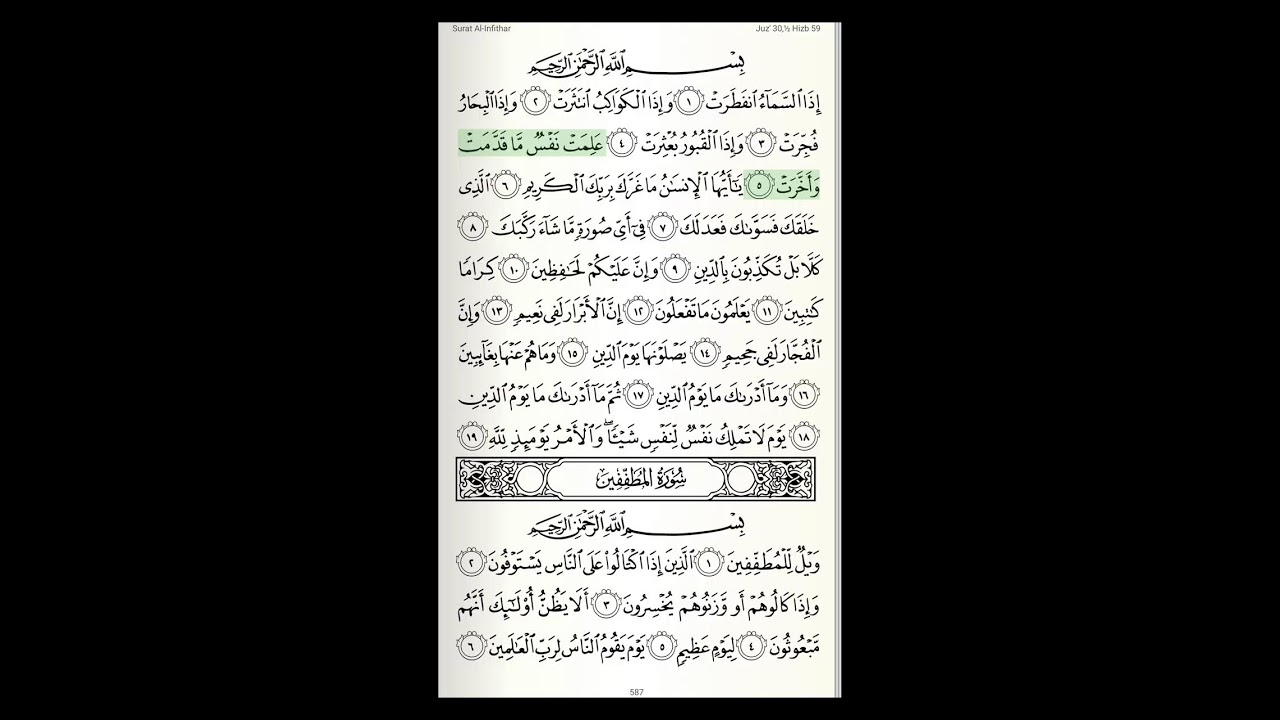 Surat Al-Infithar Juz' 30,½ Hizb 59
بِسْمِ ٱللَّهِ ٱلرَّحْمَٰنِ ٱلرَّحِيمِ
إِذَا ٱلسَّمَآءُ ٱنفَطَرَتْ ١ وَإِذَا ٱلْكَوَاكِبُ ٱنتَثَرَتْ ٢ وَإِذَا ٱلْبِحَارُ
فُجِّرَتْ ٣ وَإِذَا ٱلْقُبُورُ بُعْثِرَتْ ٤ عَلِمَتْ نَفْسٌ مَّا قَدَّمَتْ
وَأَخَّرَتْ ٥ يَٰٓأَيُّهَا ٱلْإِنسَٰنُ مَا غَرَّكَ بِرَبِّكَ ٱلْكَرِيمِ ٦ ٱلَّذِى
خَلَقَكَ فَسَوَّىٰكَ فَعَدَلَكَ ٧ فِىٓ أَىِّ صُورَةٍ مَّا شَآءَ رَكَّبَكَ ٨
كَلَّا بَلْ تُكَذِّبُونَ بِٱلدِّينِ ٩ وَإِنَّ عَلَيْكُمْ لَحَٰفِظِينَ ١٠ كِرَامًا
كَٰتِبِينَ ١١ يَعْلَمُونَ مَا تَفْعَلُونَ ١٢ إِنَّ ٱلْأَبْرَارَ لَفِى نَعِيمٍ ١٣ وَإِنَّ
ٱلْفُجَّارَ لَفِى جَحِيمٍ ١٤ يَصْلَوْنَهَا يَوْمَ ٱلدِّينِ ١٥ وَمَا هُمْ عَنْهَا بِغَآئِبِينَ
١٦ وَمَآ أَدْرَىٰكَ مَا يَوْمُ ٱلدِّينِ ١٧ ثُمَّ مَآ أَدْرَىٰكَ مَا يَوْمُ ٱلدِّينِ
١٨ يَوْمَ لَا تَمْلِكُ نَفْسٌ لِّنَفْسٍ شَيْـًٔا ۖ وَٱلْأَمْرُ يَوْمَئِذٍ لِّلَّهِ ١٩
سُورَةُ المُطَفِّفِينَ
بِسْمِ ٱللَّهِ ٱلرَّحْمَٰنِ ٱلرَّحِيمِ
وَيْلٌ لِّلْمُطَفِّفِينَ ١ ٱلَّذِينَ إِذَا ٱكْتَالُوا۟ عَلَى ٱلنَّاسِ يَسْتَوْفُونَ ٢
وَإِذَا كَالُوهُمْ أَو وَّزَنُوهُمْ يُخْسِرُونَ ٣ أَلَا يَظُنُّ أُو۟لَٰٓئِكَ أَنَّهُم
مَّبْعُوثُونَ ٤ لِيَوْمٍ عَظِيمٍ ٥ يَوْمَ يَقُومُ ٱلنَّاسُ لِرَبِّ ٱلْعَٰلَمِينَ ٦
587